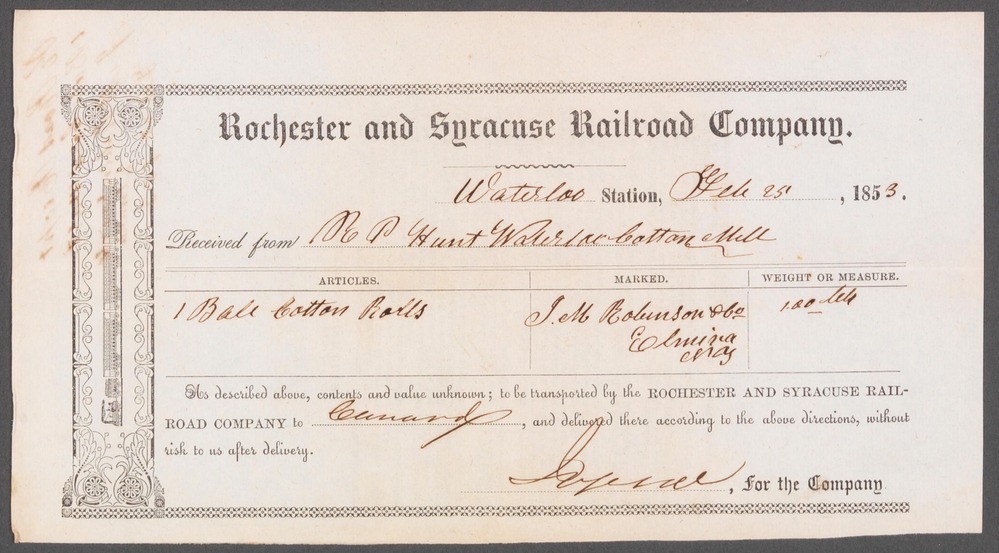 Rochester and Syracuse Railroad Company.
Waterloo Station, Feb 25, 1853.
Received from R P Hunt Waterloo Cotton Mill
ARTICLES. MARKED. WEIGHT OR MEASURE.
1 Bale Cotton J. M. Robinson & Co 100
Elmira
NY
As described above, contents and value unknown; to be transported by the ROCHESTER AND SYRACUSE RAIL-
ROAD COMPANY to , and delivered there according to the above directions, without
risk to us after delivery.
, For the Company